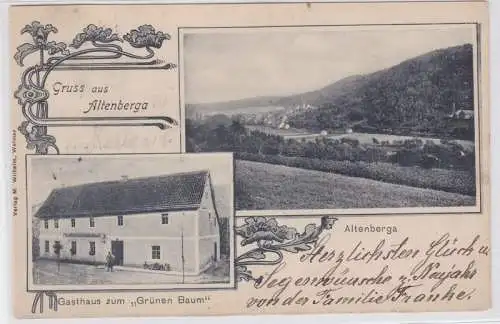 Gruss aus
Altenberga
Verlag M. Wilhelm, Weimar
Altenberga
Gasthaus zum „Grünen Baum"
Herzlichsten Glück u.
Segenwünsche z. Neujahr
von der Familie Franke.